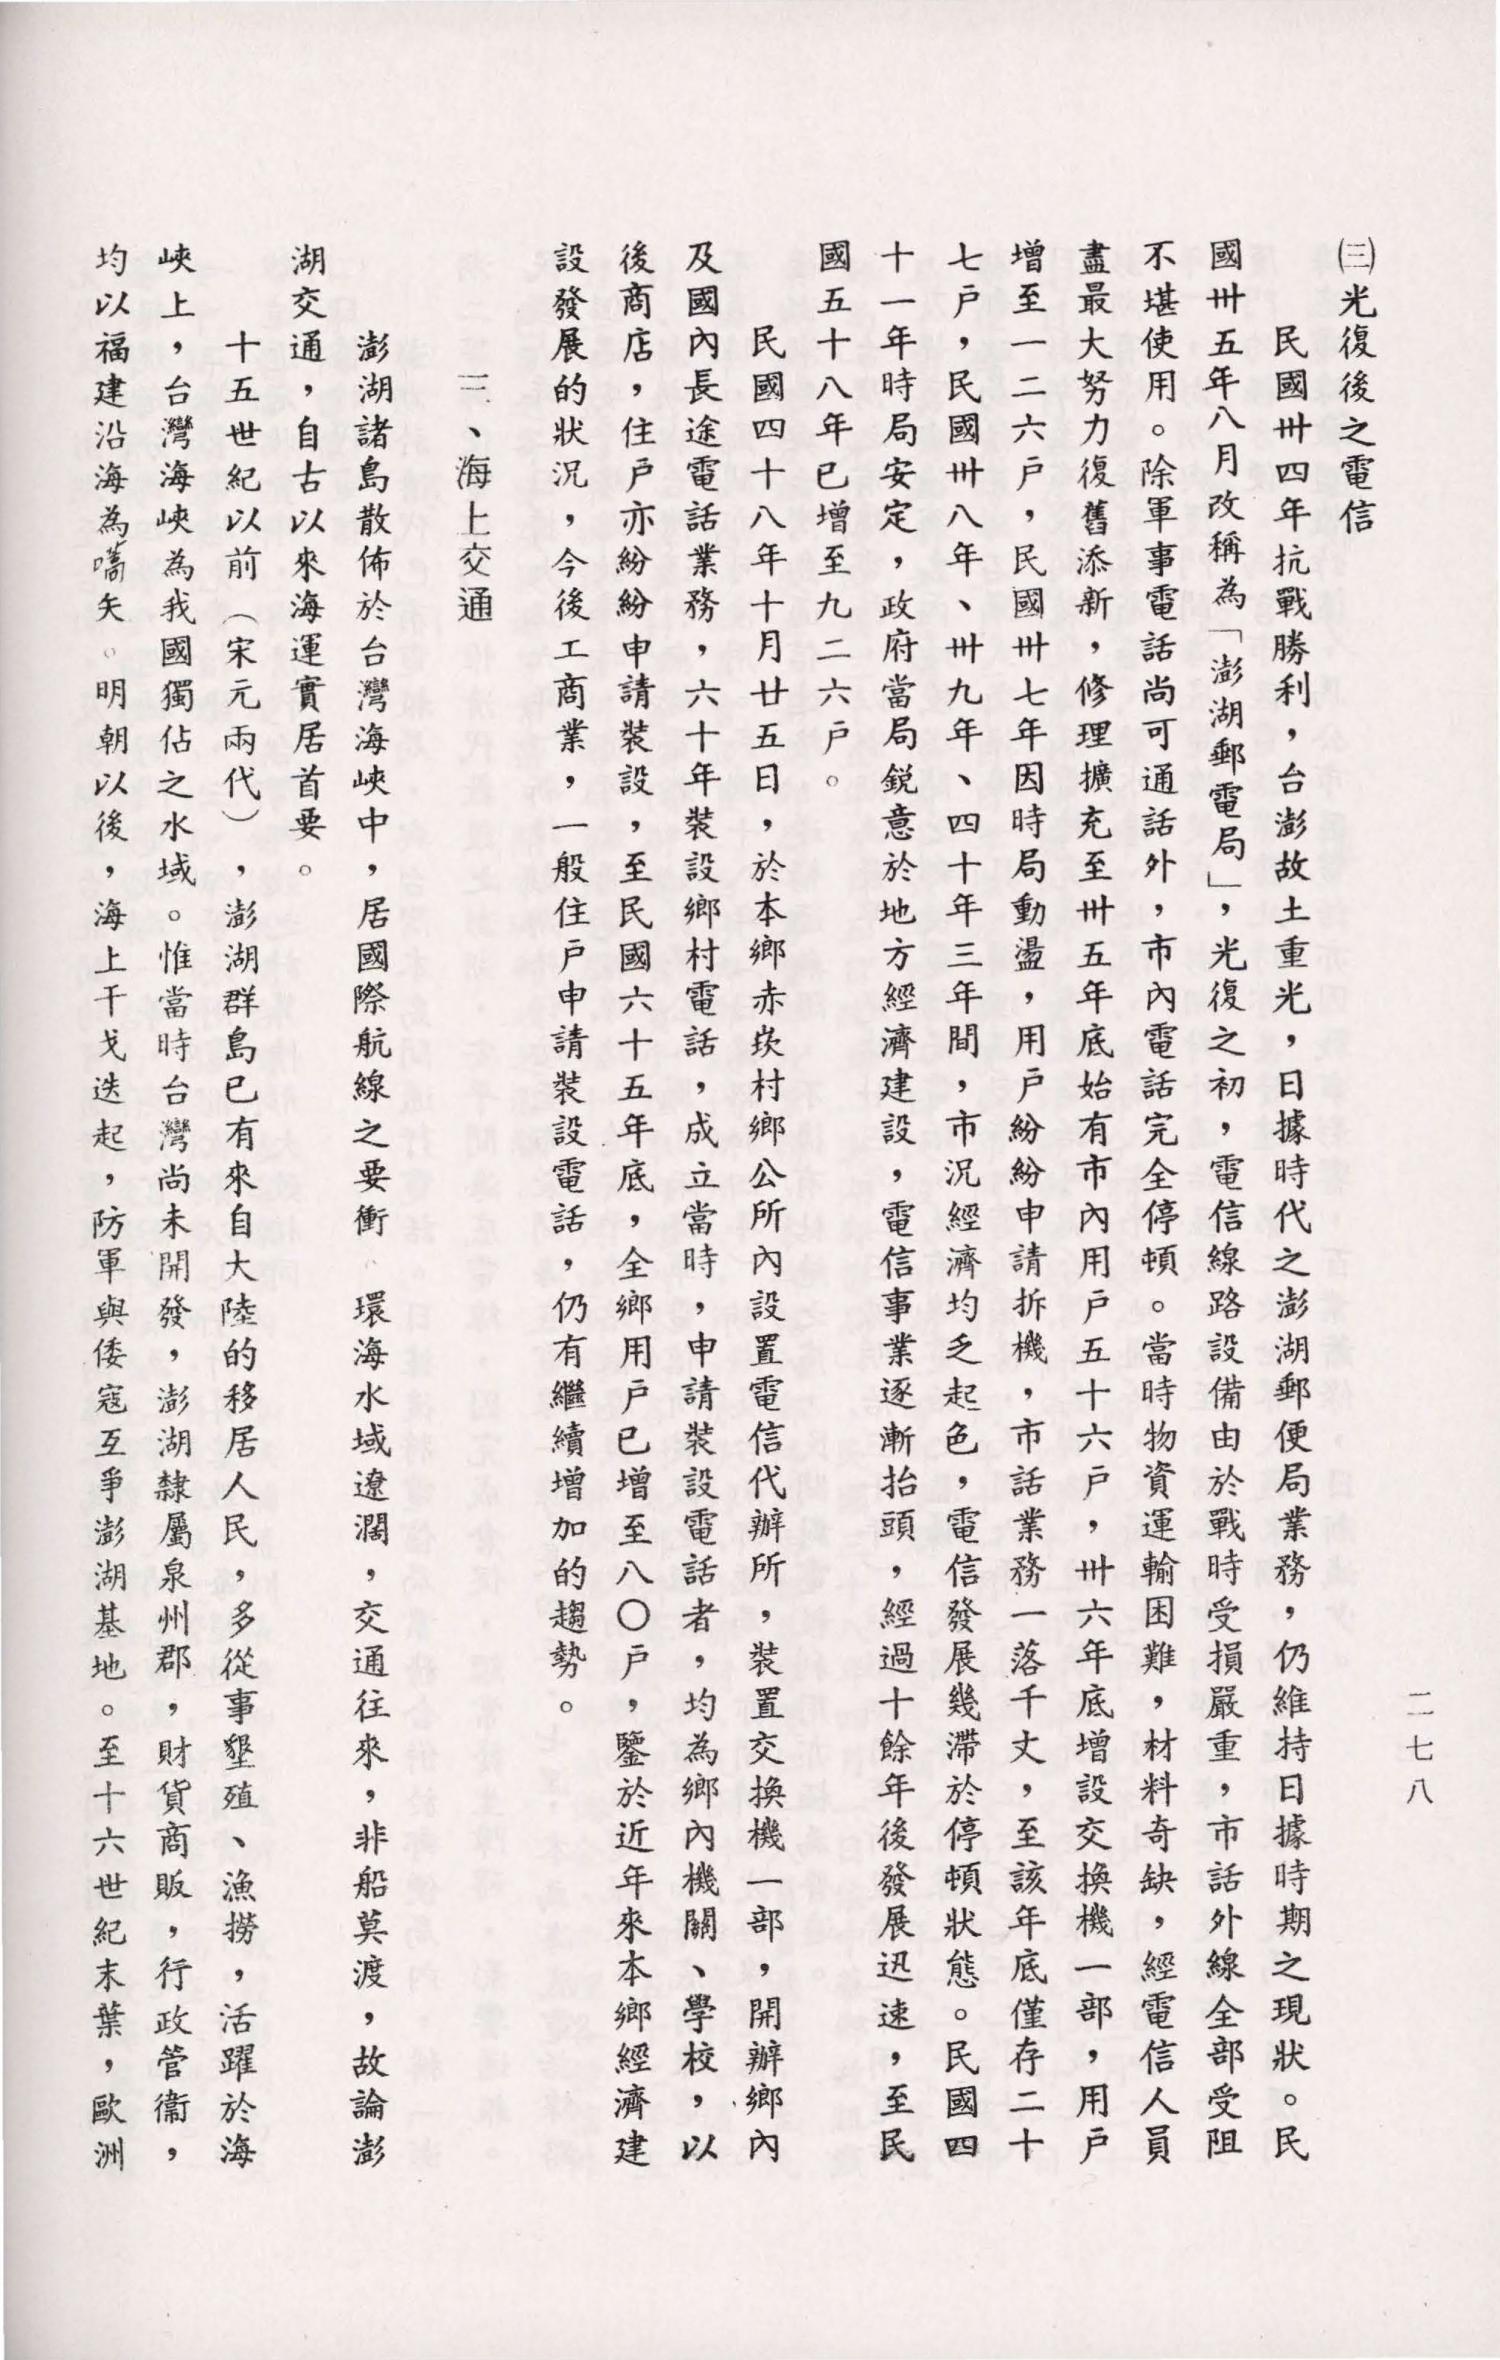 ㈢光復後之電信
民國卅四年抗戰勝利，台澎故土重光，日據時代之澎湖郵便局業務，仍維持日據時期之現狀。民
國卅五年八月改稱為「澎湖郵電局」，光復之初，電信線路設備由於戰時受損嚴重，市話外線全部受阻
不堪使用。除軍事電話尚可通話外，市內電話完全停頓。當時物資運輸困難，材料奇缺，經電信人員
盡最大努力復舊添新，修理擴充至卅五年底始有市內用戶五十六戶，卅六年底增設交換機一部，用戶
增至一二六戶，民國卅七年因時局動盪，用戶紛紛申請拆機，市話業務一落千丈，至該年底僅存二十
七戶，民國卅八年、卅九年、四十年三年間，市況經濟均乏起色，電信發展幾滯於停頓狀態。民國四
十一年時局安定，政府當局銳意於地方經濟建設，電信事業逐漸抬頭，經過十餘年後發展迅速，至民
國五十八年已增至九二六戶。
民國四十八年十月廿五日，於本鄉赤崁村鄉公所內設置電信代辦所，裝置交換機一部，開辦鄉內
及國內長途電話業務，六十年裝設鄉村電話，成立當時，申請裝設電話者，均為鄉內機關、學校，以
後商店，住戶亦紛紛申請裝設，至民國六十五年底，全鄉用戶已增至八〇戶，鑒於近年來本鄉經濟建
設發展的狀況，今後工商業，一般住戶申請裝設電話，仍有繼續增加的趨勢。
三、海上交通
澎湖諸島散佈於台灣海峽中，居國際航線之要衝 環海水域遼濶，交通往來，非船莫渡，故論澎
湖交通，自古以來海運實居首要。
十五世紀以前（宋元兩代），澎湖群島已有來自大陸的移居人民，多從事墾殖、漁撈，活躍於海
峽上，台灣海峽為我國獨佔之水域。惟當時台灣尚未開發，澎湖隸屬泉州郡，財貨商販，行政管衞，
均以福建沿海為嚆矢。明朝以後，海上干戈迭起，防軍與倭寇互爭澎湖基地。至十六世紀末葉，歐洲
二七八